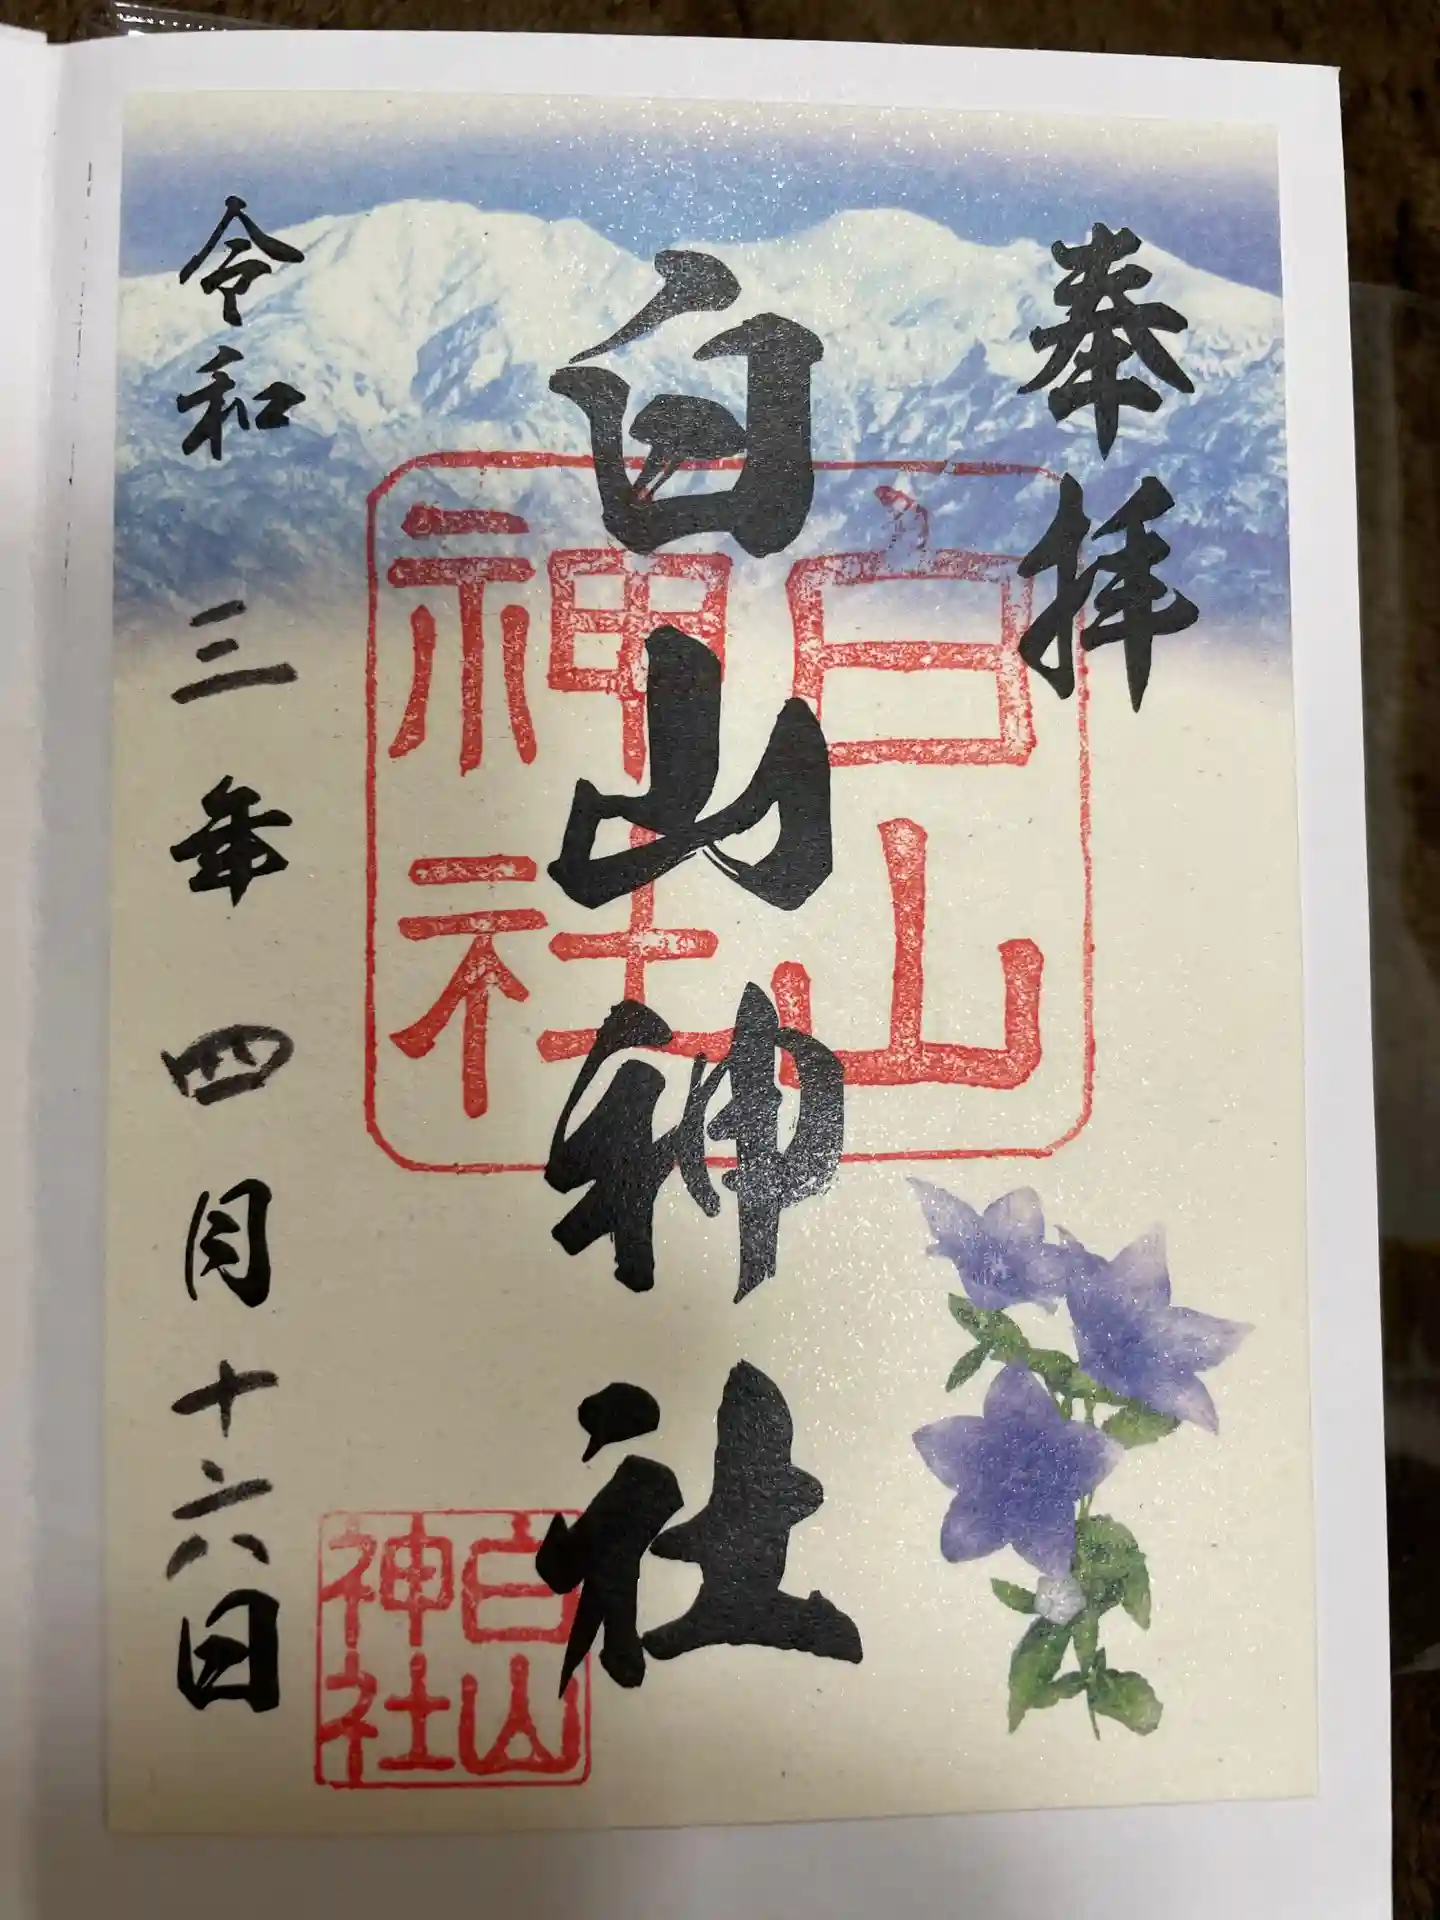 奉拝
白山神社
白山神社
令和三年四月十六日
白山神社